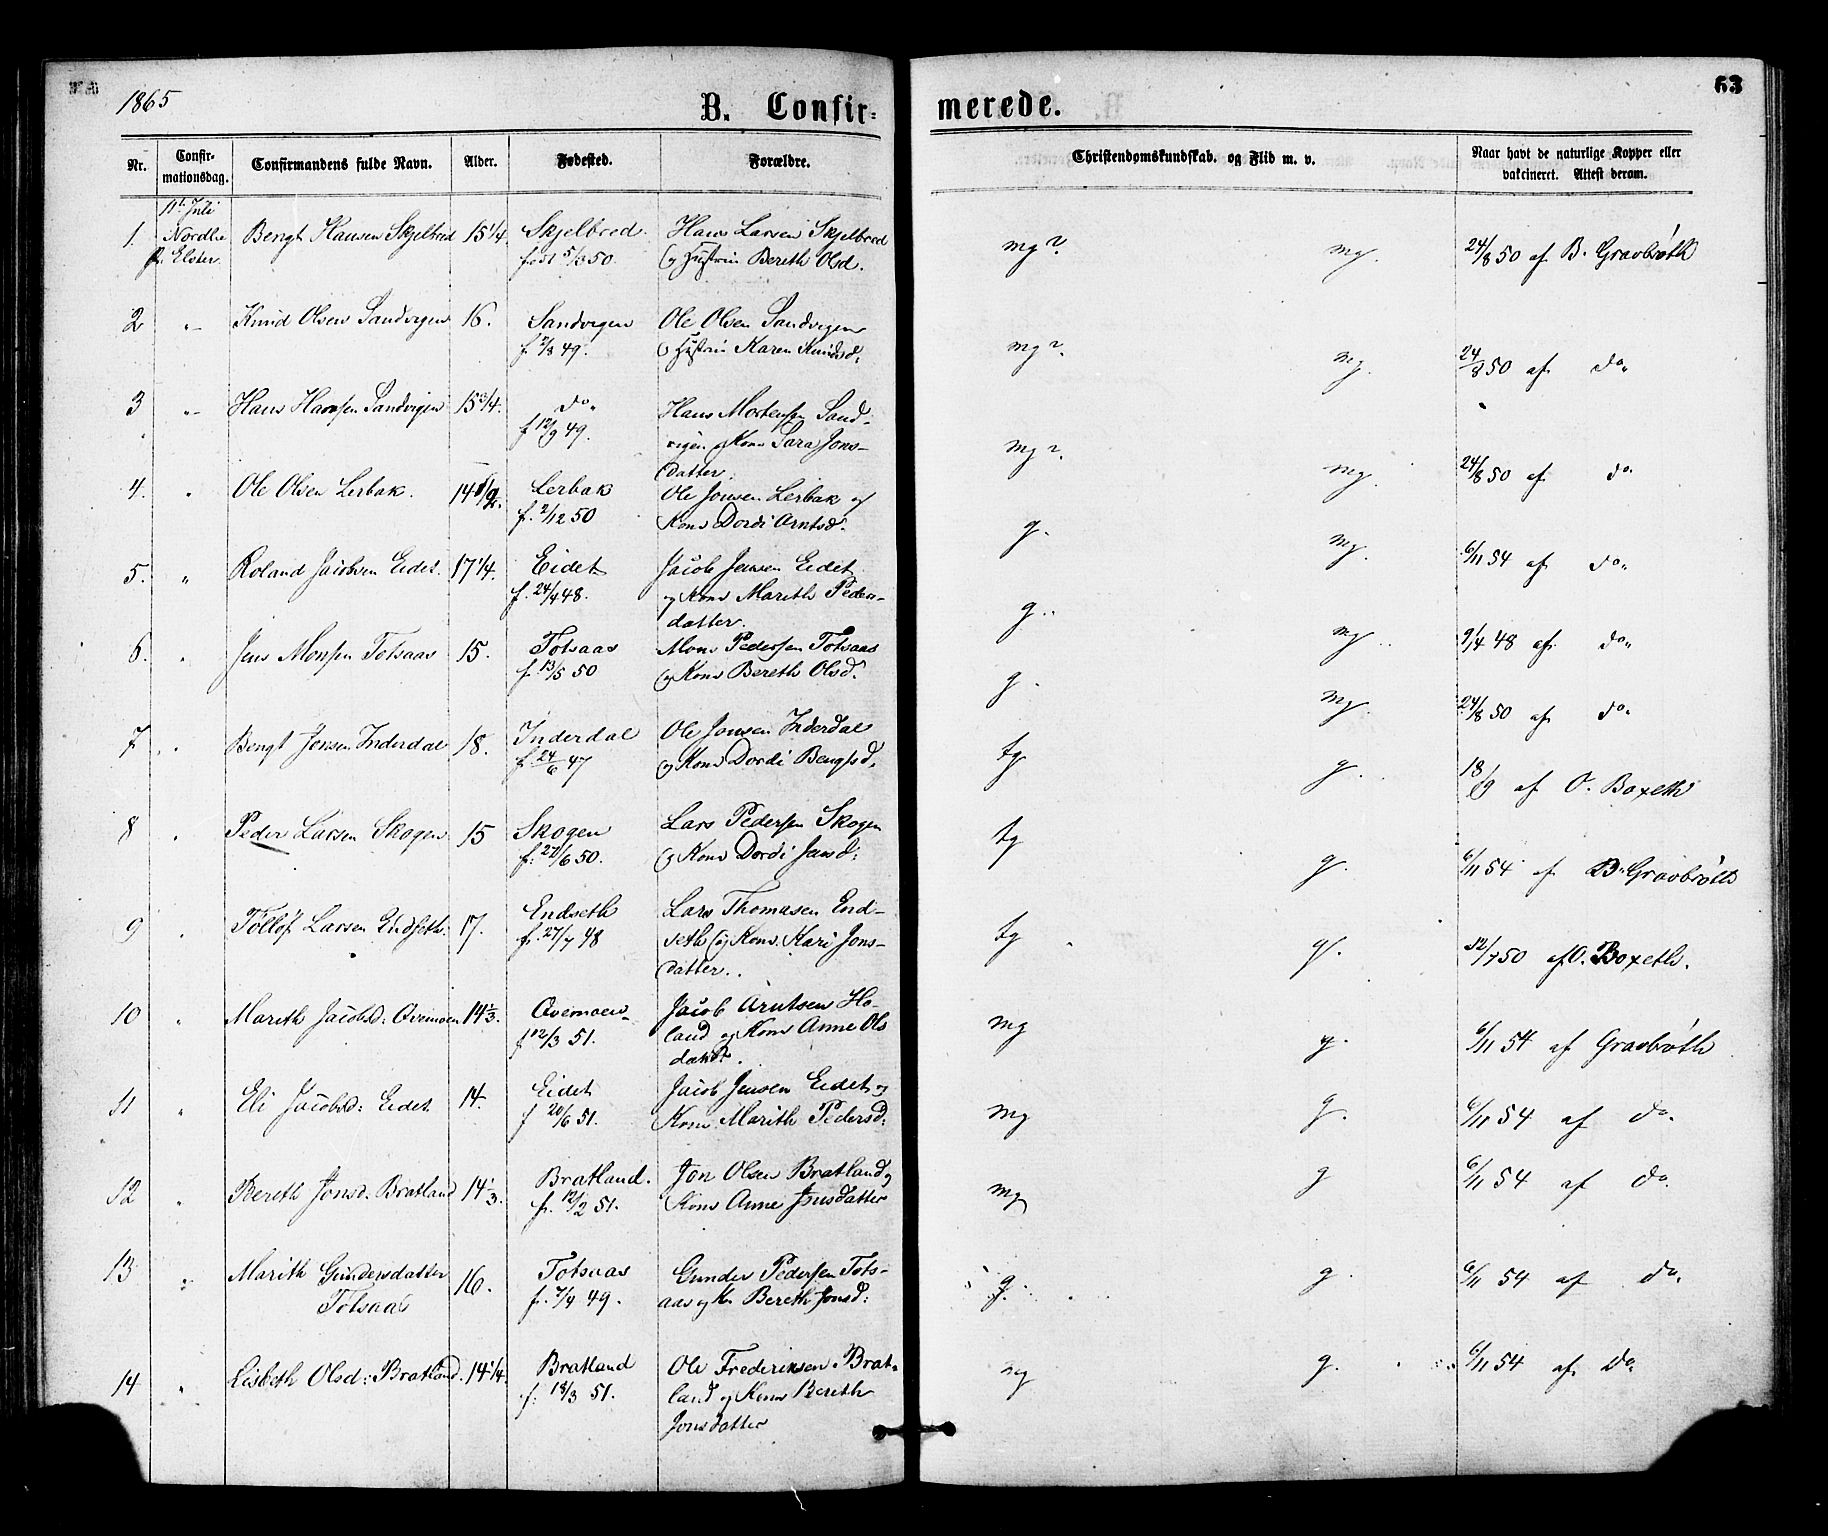 1865
B. Confir-
merede.
63
Nr.
Confir-
mationsdag.
Confirmandens fulde Navn.
Alder.
Fødested.
Forældre.
Christendomskundskab. og Flid m. v.
Naar havt de naturlige Kopper eller
vakcineret. Attest derom.
1. Juli Nordlie Bengt Hansen Skjelbred 15 1/4. Skjelbred. Hans Larsen Skjelbred mg? mg. 24/8 50 af B. Gravbrøth
født 5/3 50 og Hustru Bereth Olsd.
2 "- Knud Olsen Sandvigen 16. Sandvigen Ole Olsen Sandvigen mg?. mg. 24/8 50 af do
f. 2/3 49. og Hustru Karen Knudsd:
3 "- Hans Hansen Sandvigen 15 3/4. do Hans Mortensen Sand- mg?. mg. 24/8 50 af do
f 12/9 49. vigen og Kone Sara Jons-
datter.
4. " Ole Olsen Lerbak. 14 1/2. Lerbak Ole Jonsen Lerbak og g. mg. 6/11 54 af do
f. 2/12 50 Kone Dordi Arntsd:
5. " Roland Jacobsen Eidet. 17 1/4. Eidet Jacob Jensen Eidet g. mg. 9/4 48 af do
f. 24/4 48. og Kone Marith Peders-
datter.
6. " Jens Monsen Totsaas 15. Totsaas Mons Pedersen Totsaas g. mg. 24/8 50 af do
f. 13/5 50 og Kone Bereth Olsd.
7 " Bengt Jonsen Inderdal 18. Inderdal Ole Jonsen Inderdal tg g. 18/9 af O. Boxeth
f. 24/6 47 og Kone Dordi Bengtsd.
8 " Peder Larsen Skogen 15 Skogen Lars Pedersen Skogen tg g. 6/11 54 af B. Gravbrøth
f. 27/6 50. og Kone Dordi Jensd:
9 " Tolløf Larsen Endseth: 17. Endseth Lars Thomasen End- tg g. 12/7 50 af O. Boxeth.
f. 27/7 48 seth og Kone Kari Jons-
datter.
10 " Marith Jacobsd: Overmoen 14 1/3. Overmoen Jacob Arntsen Ho- mg g. 6/11 54 af Gravbrøth
f 12/3 51. land og Kone Anne Ols
11 " Eli Jacobsd: Eidet 14. Eidet Jacob Jensen Eidet og mg g. 6/11 54 af do.
f 20/6 51. Kone Marith Pedersd:
12 " Bereth Jonsd. Bratland 14 1/3. Bratland. Jon Olsen Bratland og mg g 6/11 54 af do.
f. 12/2 51. Kone Anne Jonsdatter
13 " Marith Gundersdatter 16. Totsaas Gunder Pedersen Tots- g. g. 6/11 54 af do.
Totsaas f. 7/4 49. aas og K. Bereth Jonsd:
14 " Lisbeth Olsd: Bratland. 14 1/4. Bratland Ole Frederiksen Brat- mg g. 6/11 54 af do
f. 18/3 51. land og Kone Bereth
Jonsdatter